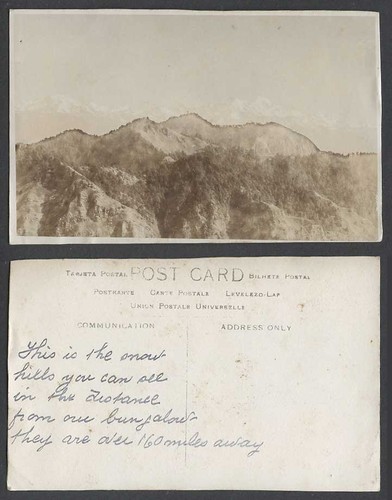 TARJETA POSTAL POST CARD BILHETE POSTAL
POSTKARTE CARTE POSTALE LEVELEZO-LAP
UNION POSTALE UNIVERSELLE
COMMUNICATION ADDRESS ONLY
This is the snow
hills you can see
in the distance
from our bungalow
they are over 160 miles away